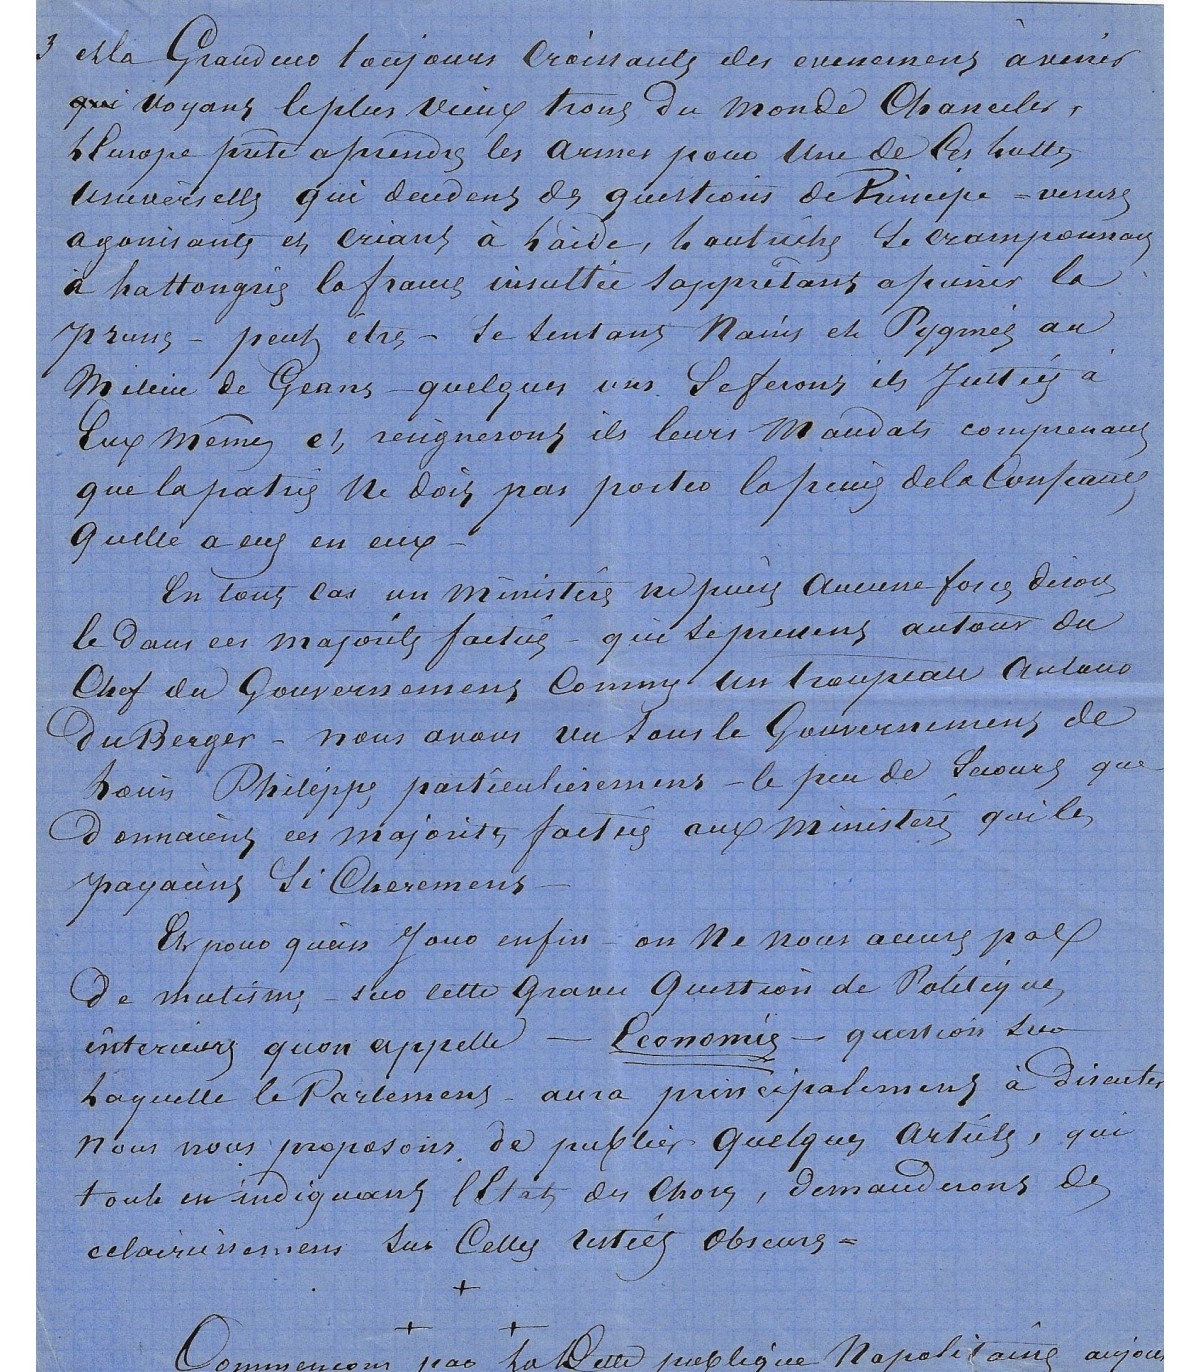 3 et la Grandeur toujours croissante des evenements à venir
qui voyant le plus vieux trone du monde Chanceler,
L'Europe prête aprendre les armes pour Une de Ces luttes
Universelles qui decident de questions de Principe = venise
agonisante et criant à l'aide, l'autriche se cramponnant
à la hongrie la france insultée s'apprêtant a punir la
prusse – peut être – se sentant Nains et Pygmés au
Milieu de Geans – quelques uns se feront ils Justice à
Eux Mêmes et resigneront ils leurs Mandats comprenant
que la patrie Ne doit pas porter la peine de la Confiance
Quelle a eue en eux –
En tout cas un Ministère ne puise Aucune force
le dans ces majorités factices – qui se pressent autour du
Chef du Gouvernement Comme un troupeau Autour
Du Berger – nous avons vu sous le Gouvernement de
Louis Philippe particulierement – le peu de secours que
donnaient ces majorités factices aux ministères qui les
payaient Si Cherement –
Et pour qu'un Jour enfin – on Ne nous accuse pas
De mutisme – sur cette Grave Question de Politique
interieure quon appelle – Economie – question sur
Laquelle le Parlement – aura principalement à Discuter
Nous nous proposons de publier quelques Articles, qui
tout en indiquant l'Etat des Choses, demanderont des
eclaircissemens sur Celles restées Obscures =
+
+ +
Commencons par La Dette publique Napolitaine aujour